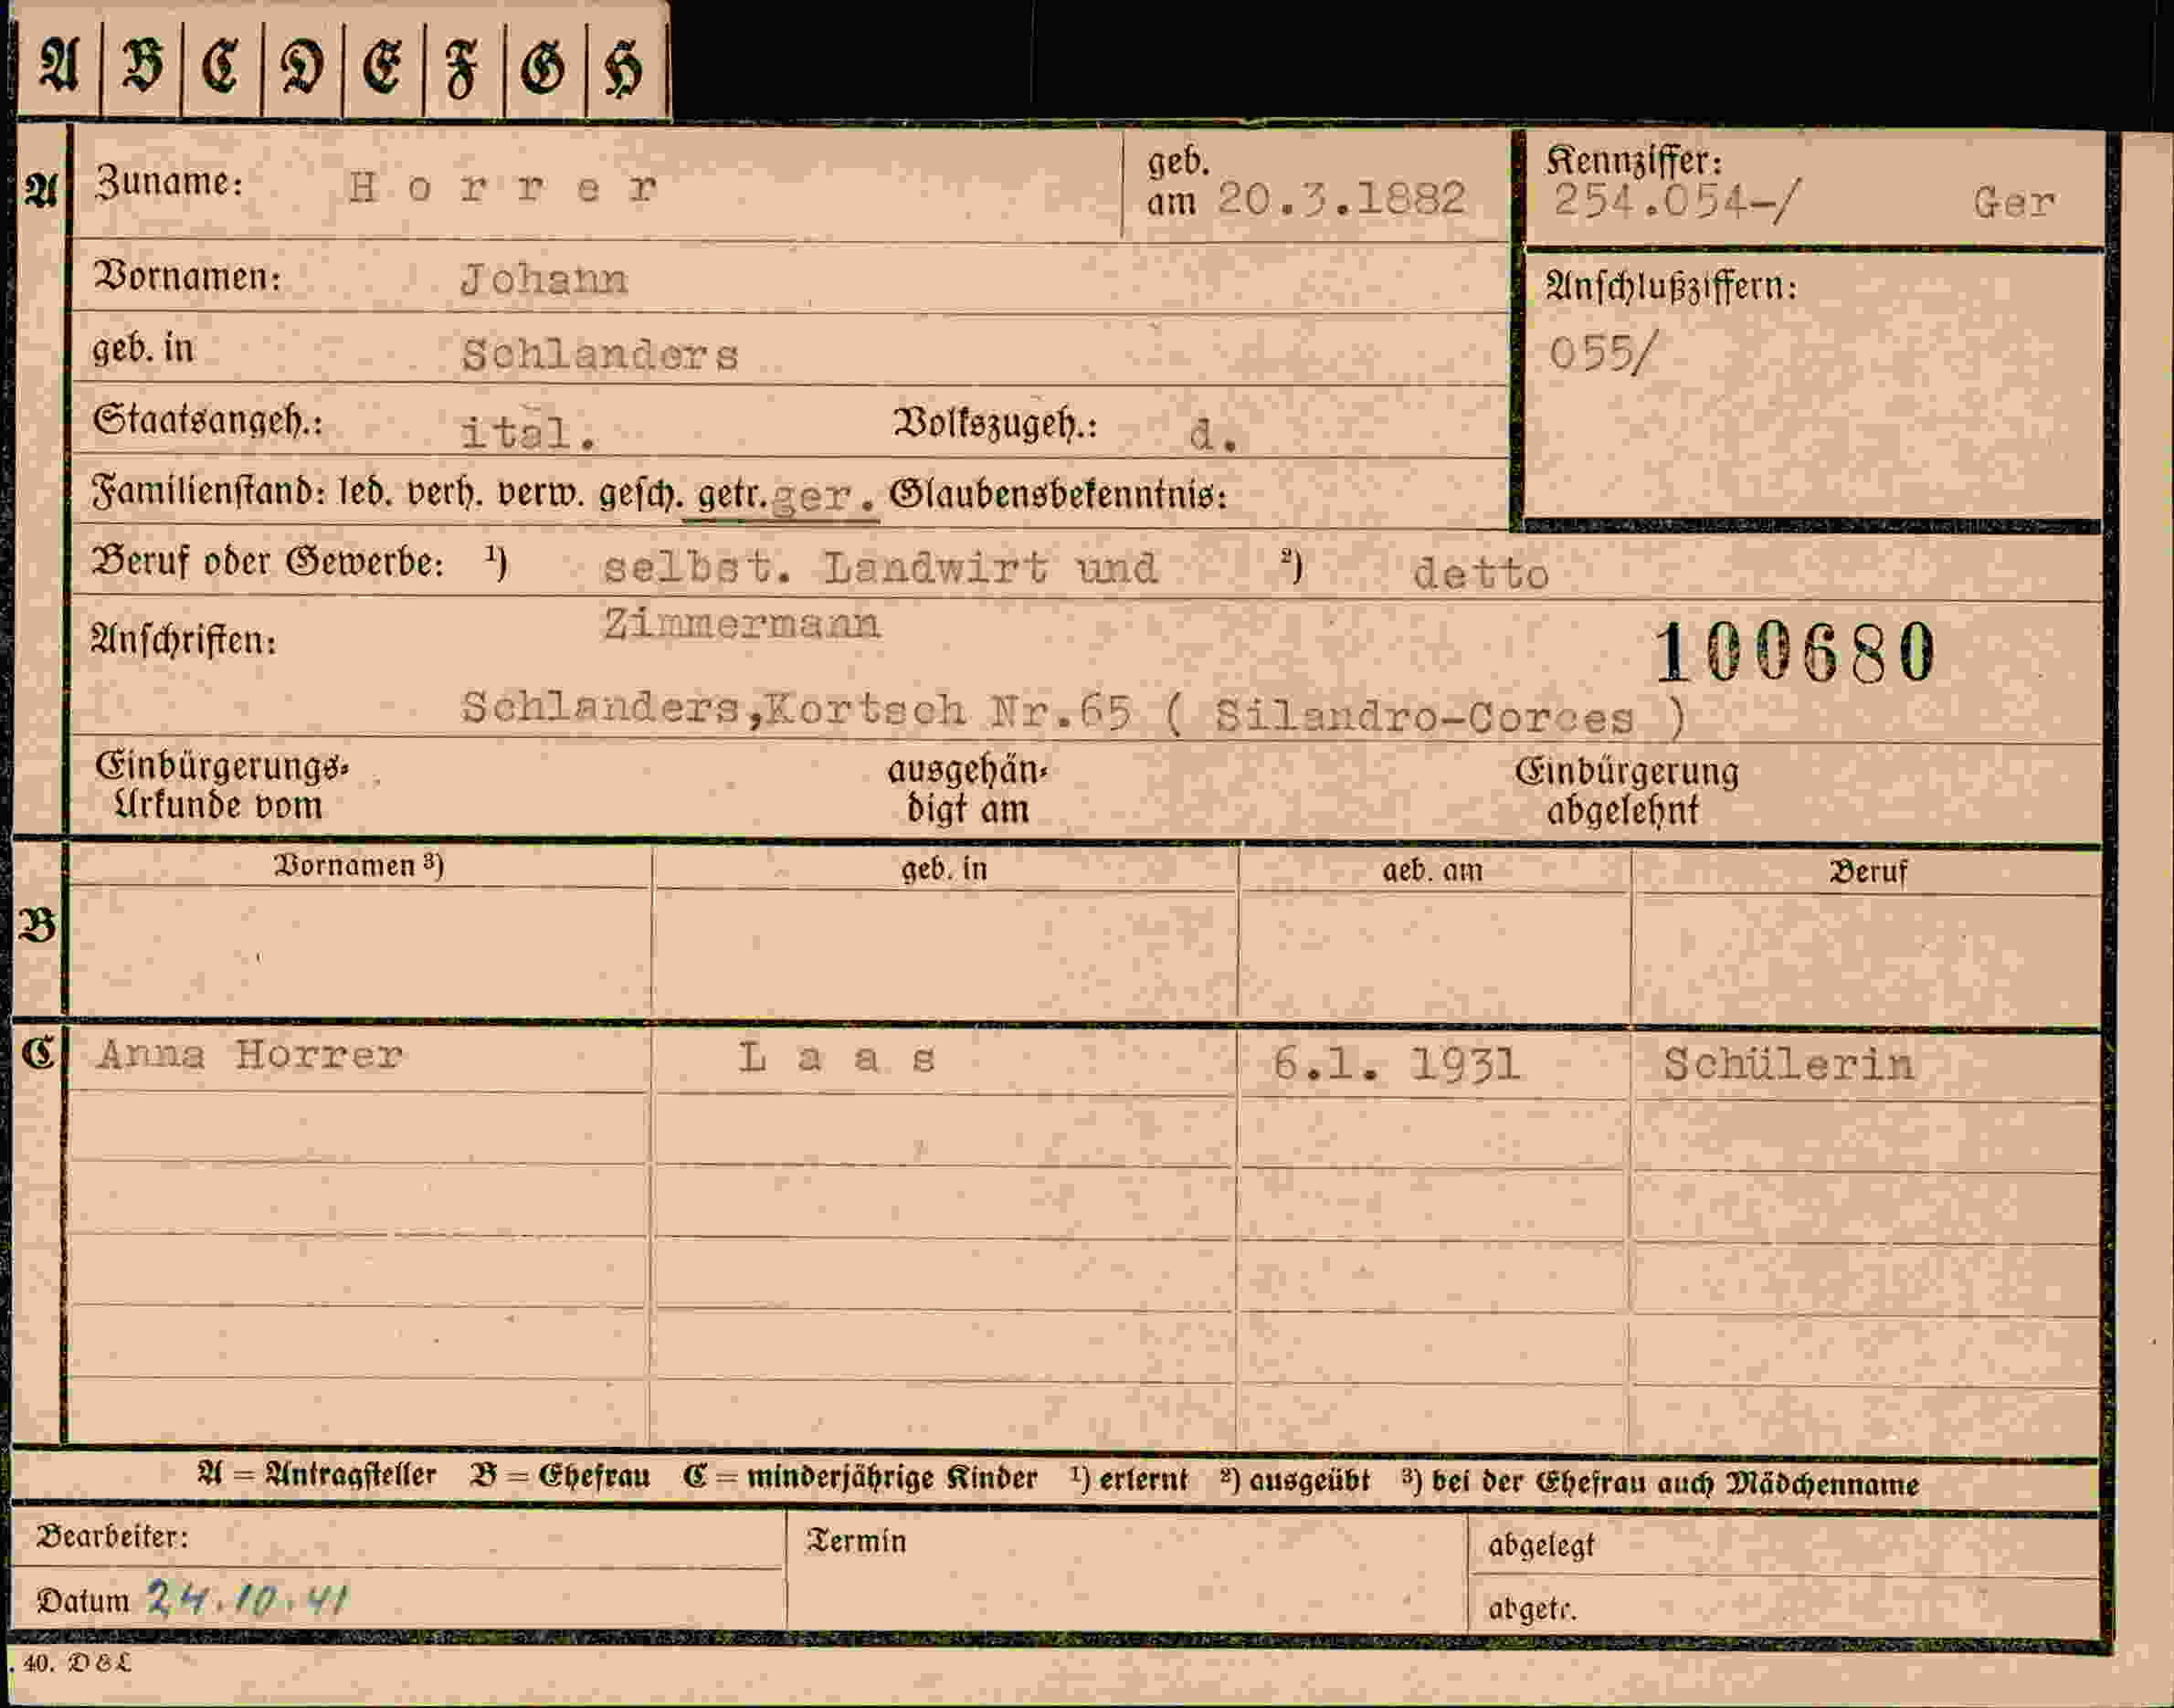 A B C D E F G H
A Zuname: Horrer geb. am 20.3.1882 Kennziffer: 254.054-/ Ger
Vornamen: Johann
Anschlußziffern:
geb. in Schlanders 055/
Staatsangeh.: ital. Volkszugeh.: d.
Familienstand: led. verh. verw. gesch. getr. ger. Glaubensbekenntnis:
Beruf oder Gewerbe: 1) selbst. Landwirt und 2) detto
Zimmermann
Anschriften: 100680
Schlanders,Kortsch Nr.65 ( Silandro-Corces )
Einbürgerungs- ausgehän- Einbürgerung
Urkunde vom digt am abgelehnt
Vornamen 3) geb. in geb. am Beruf
B
C Anna Horrer Laas 6.1. 1931 Schülerin
A = Antragsteller B = Ehefrau C = minderjährige Kinder 1) erlernt 2) ausgeübt 3) bei der Ehefrau auch Mädchenname
Bearbeiter: Termin abgelegt
Datum 24.10.41 abgetr.
. 40. D & L